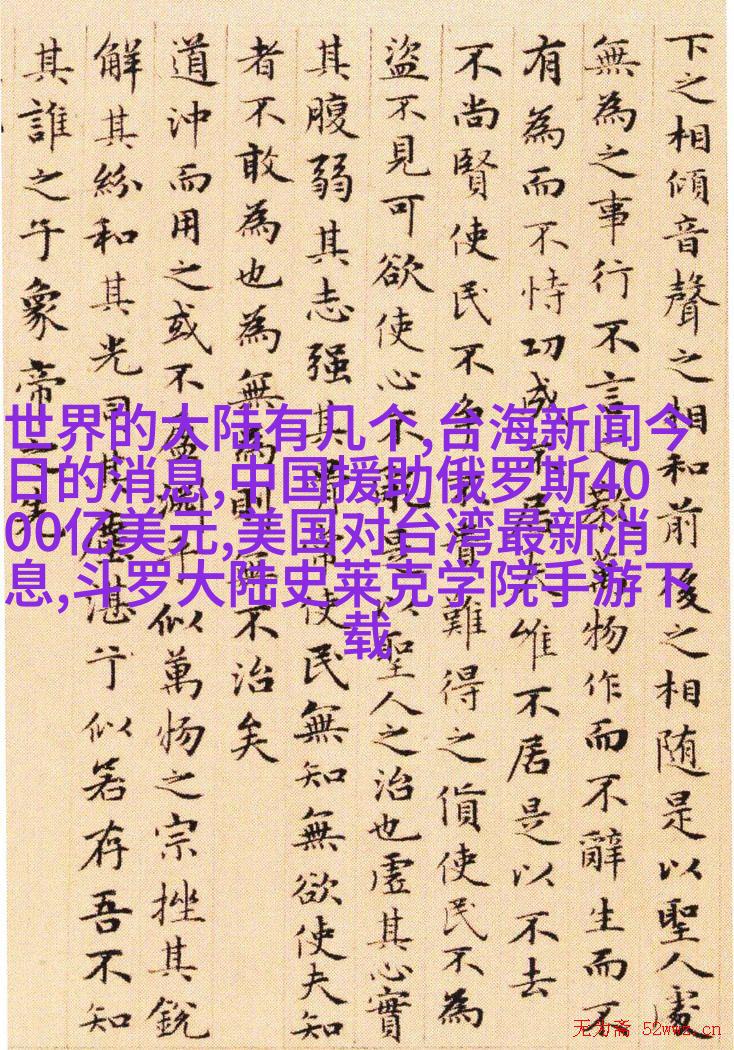 下之相傾音聲之相和前後之相随是以聖人處
無為之事行不言之教萬物作而不辭生而不
有為而不恃功成不居夫唯不居是以不去
不尚賢使民不争貴難得之貨使民不為
盜不見可欲使心不亂是以聖人之治也虛其心實
其腹弱其志强其骨常使民無知無欲使夫知
者不敢為也為無為則無不治矣
道沖而用之或不盈淵乎似萬物之宗挫其銳
解其紛和其光同其塵湛兮似若存吾不知
其誰之子象帝之先
世界的大陆有几个,台海新闻今
日的消息,中国援助俄罗斯40
00亿美元,美国对台湾最新消
息,斗罗大陆史莱克学院手游下
载
无为斋 52wwz.cn